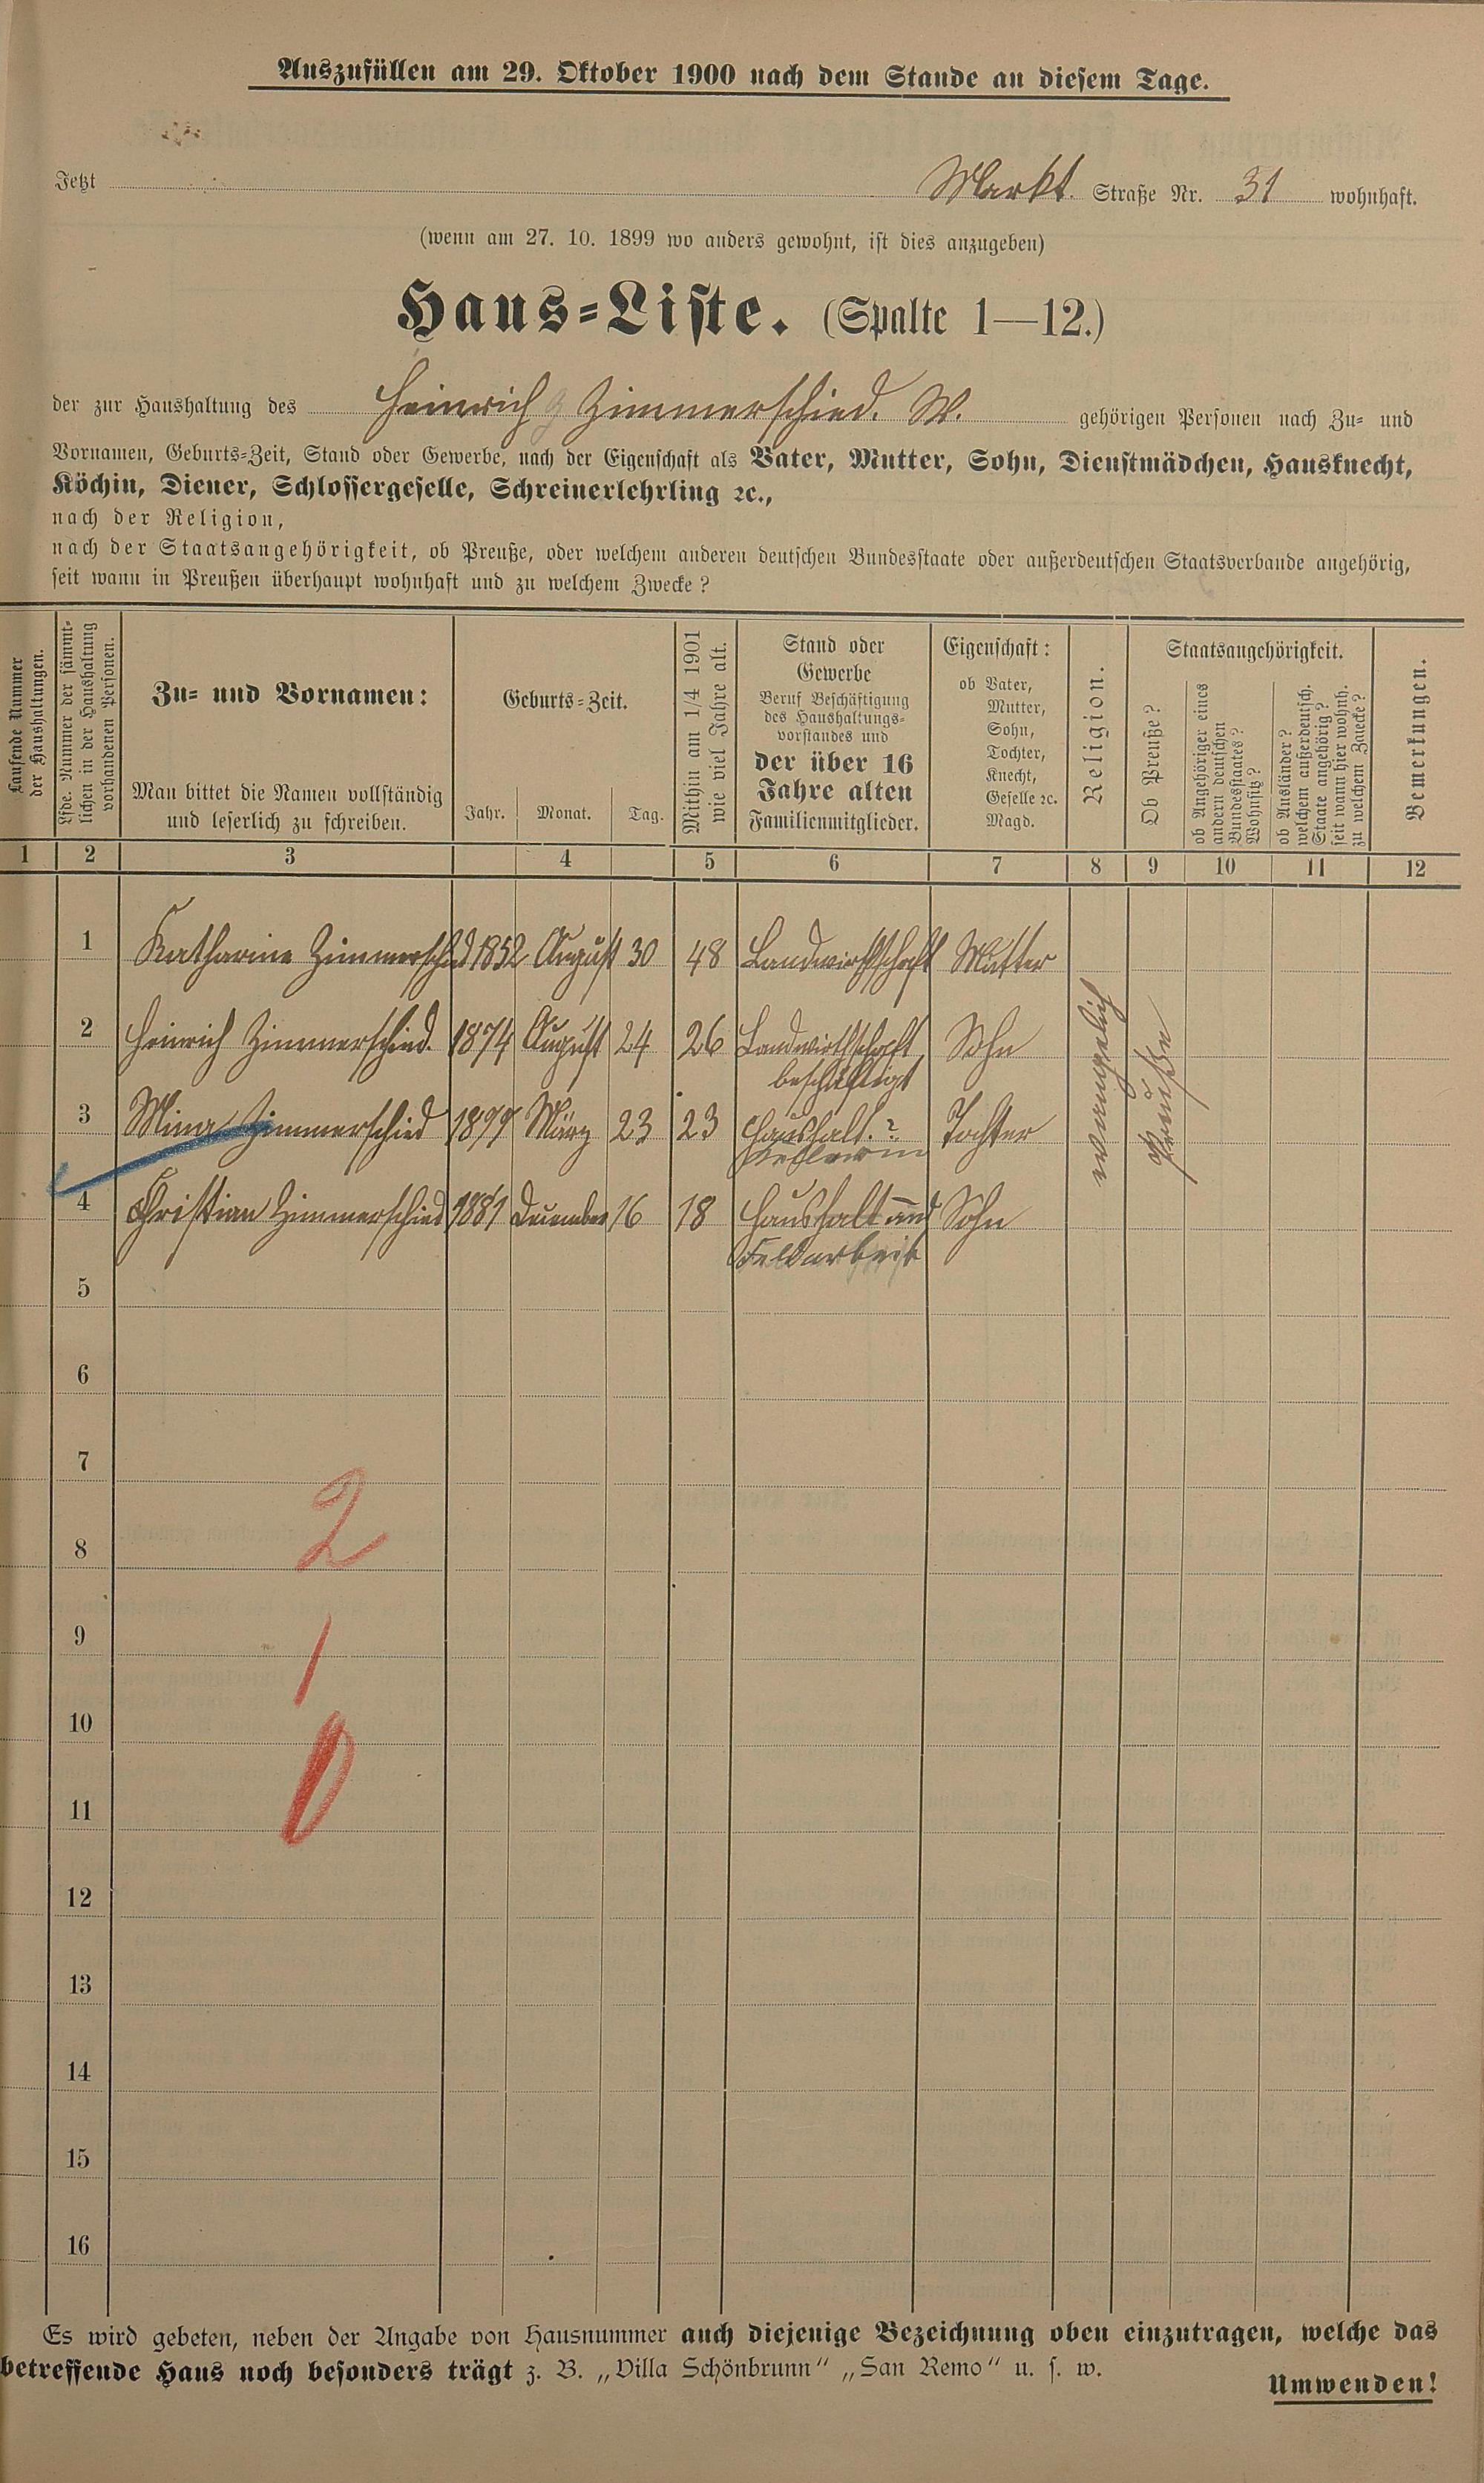 Auszufüllen am 29. Oktober 1900 nach dem Stande an diesem Tage.
Jetzt Markt. Straße Nr. 31 wohnhaft.
(wenn am 27. 10. 1899 wo anders gewohnt, ist dies anzugeben)
Haus=Liste. (Spalte 1—12.)
der zur Haushaltung des Heinrich Zimmerschied. W. gehörigen Personen nach Zu= und
Vornamen, Geburts=Zeit, Stand oder Gewerbe, nach der Eigenschaft als Vater, Mutter, Sohn, Dienstmädchen, Hausknecht,
Köchin, Diener, Schlossergeselle, Schreinerlehrling ꝛc.,
nach der Religion,
nach der Staatsangehörigkeit, ob Preuße, oder welchem anderen deutschen Bundesstaate oder außerdeutschen Staatsverbande angehörig,
seit wann in Preußen überhaupt wohnhaft und zu welchem Zwecke?
Laufende Nummer
der Haushaltungen.
Lfde. Nummer der sämmt=
lichen in der Haushaltung
vorhandenen Personen.
Zu= und Vornamen:
Man bittet die Namen vollständig
und leserlich zu schreiben.
Geburts=Zeit.
Jahr. Monat. Tag.
Mithin am 1/4 1901
wie viel Jahre alt.
Stand oder
Gewerbe
Beruf Beschäftigung
des Haushaltungs=
vorstandes und
der über 16
Jahre alten
Familienmitglieder.
Eigenschaft:
ob Vater,
Mutter,
Sohn,
Tochter,
Knecht,
Geselle ꝛc.
Magd.
Religion.
Staatsangehörigkeit.
Ob Preuße?
ob Angehöriger eines
andern deutschen
Bundesstaates?
Wohnsitz?
ob Ausländer?
welchem außerdeutsch.
Staate angehörig?
seit wann hier wohnh.
zu welchem Zwecke?
Bemerkungen.
1 2 3 4 5 6 7 8 9 10 11 12
1 Katharina Zimmerschied 1852 August 30 48 Landwirthschaft Mutter
2 Heinrich Zimmerschied. 1874 August 24 26 Landwirthschaft Sohn
beschäftigt
3 Mina Zimmerschied 1877 März 23 23 Haushalt.? Tochter
4 Christian Zimmerschied 1881 December 16 18 Haushalt und Sohn
Feldarbeit
evangelisch
Preuße
5
6
7
2
8
9
1
10
0
11
12
13
14
15
16
Es wird gebeten, neben der Angabe von Hausnummer auch diejenige Bezeichnung oben einzutragen, welche das
betreffende Haus noch besonders trägt z. B. „Villa Schönbrunn“ „San Remo“ u. s. w.
Umwenden!